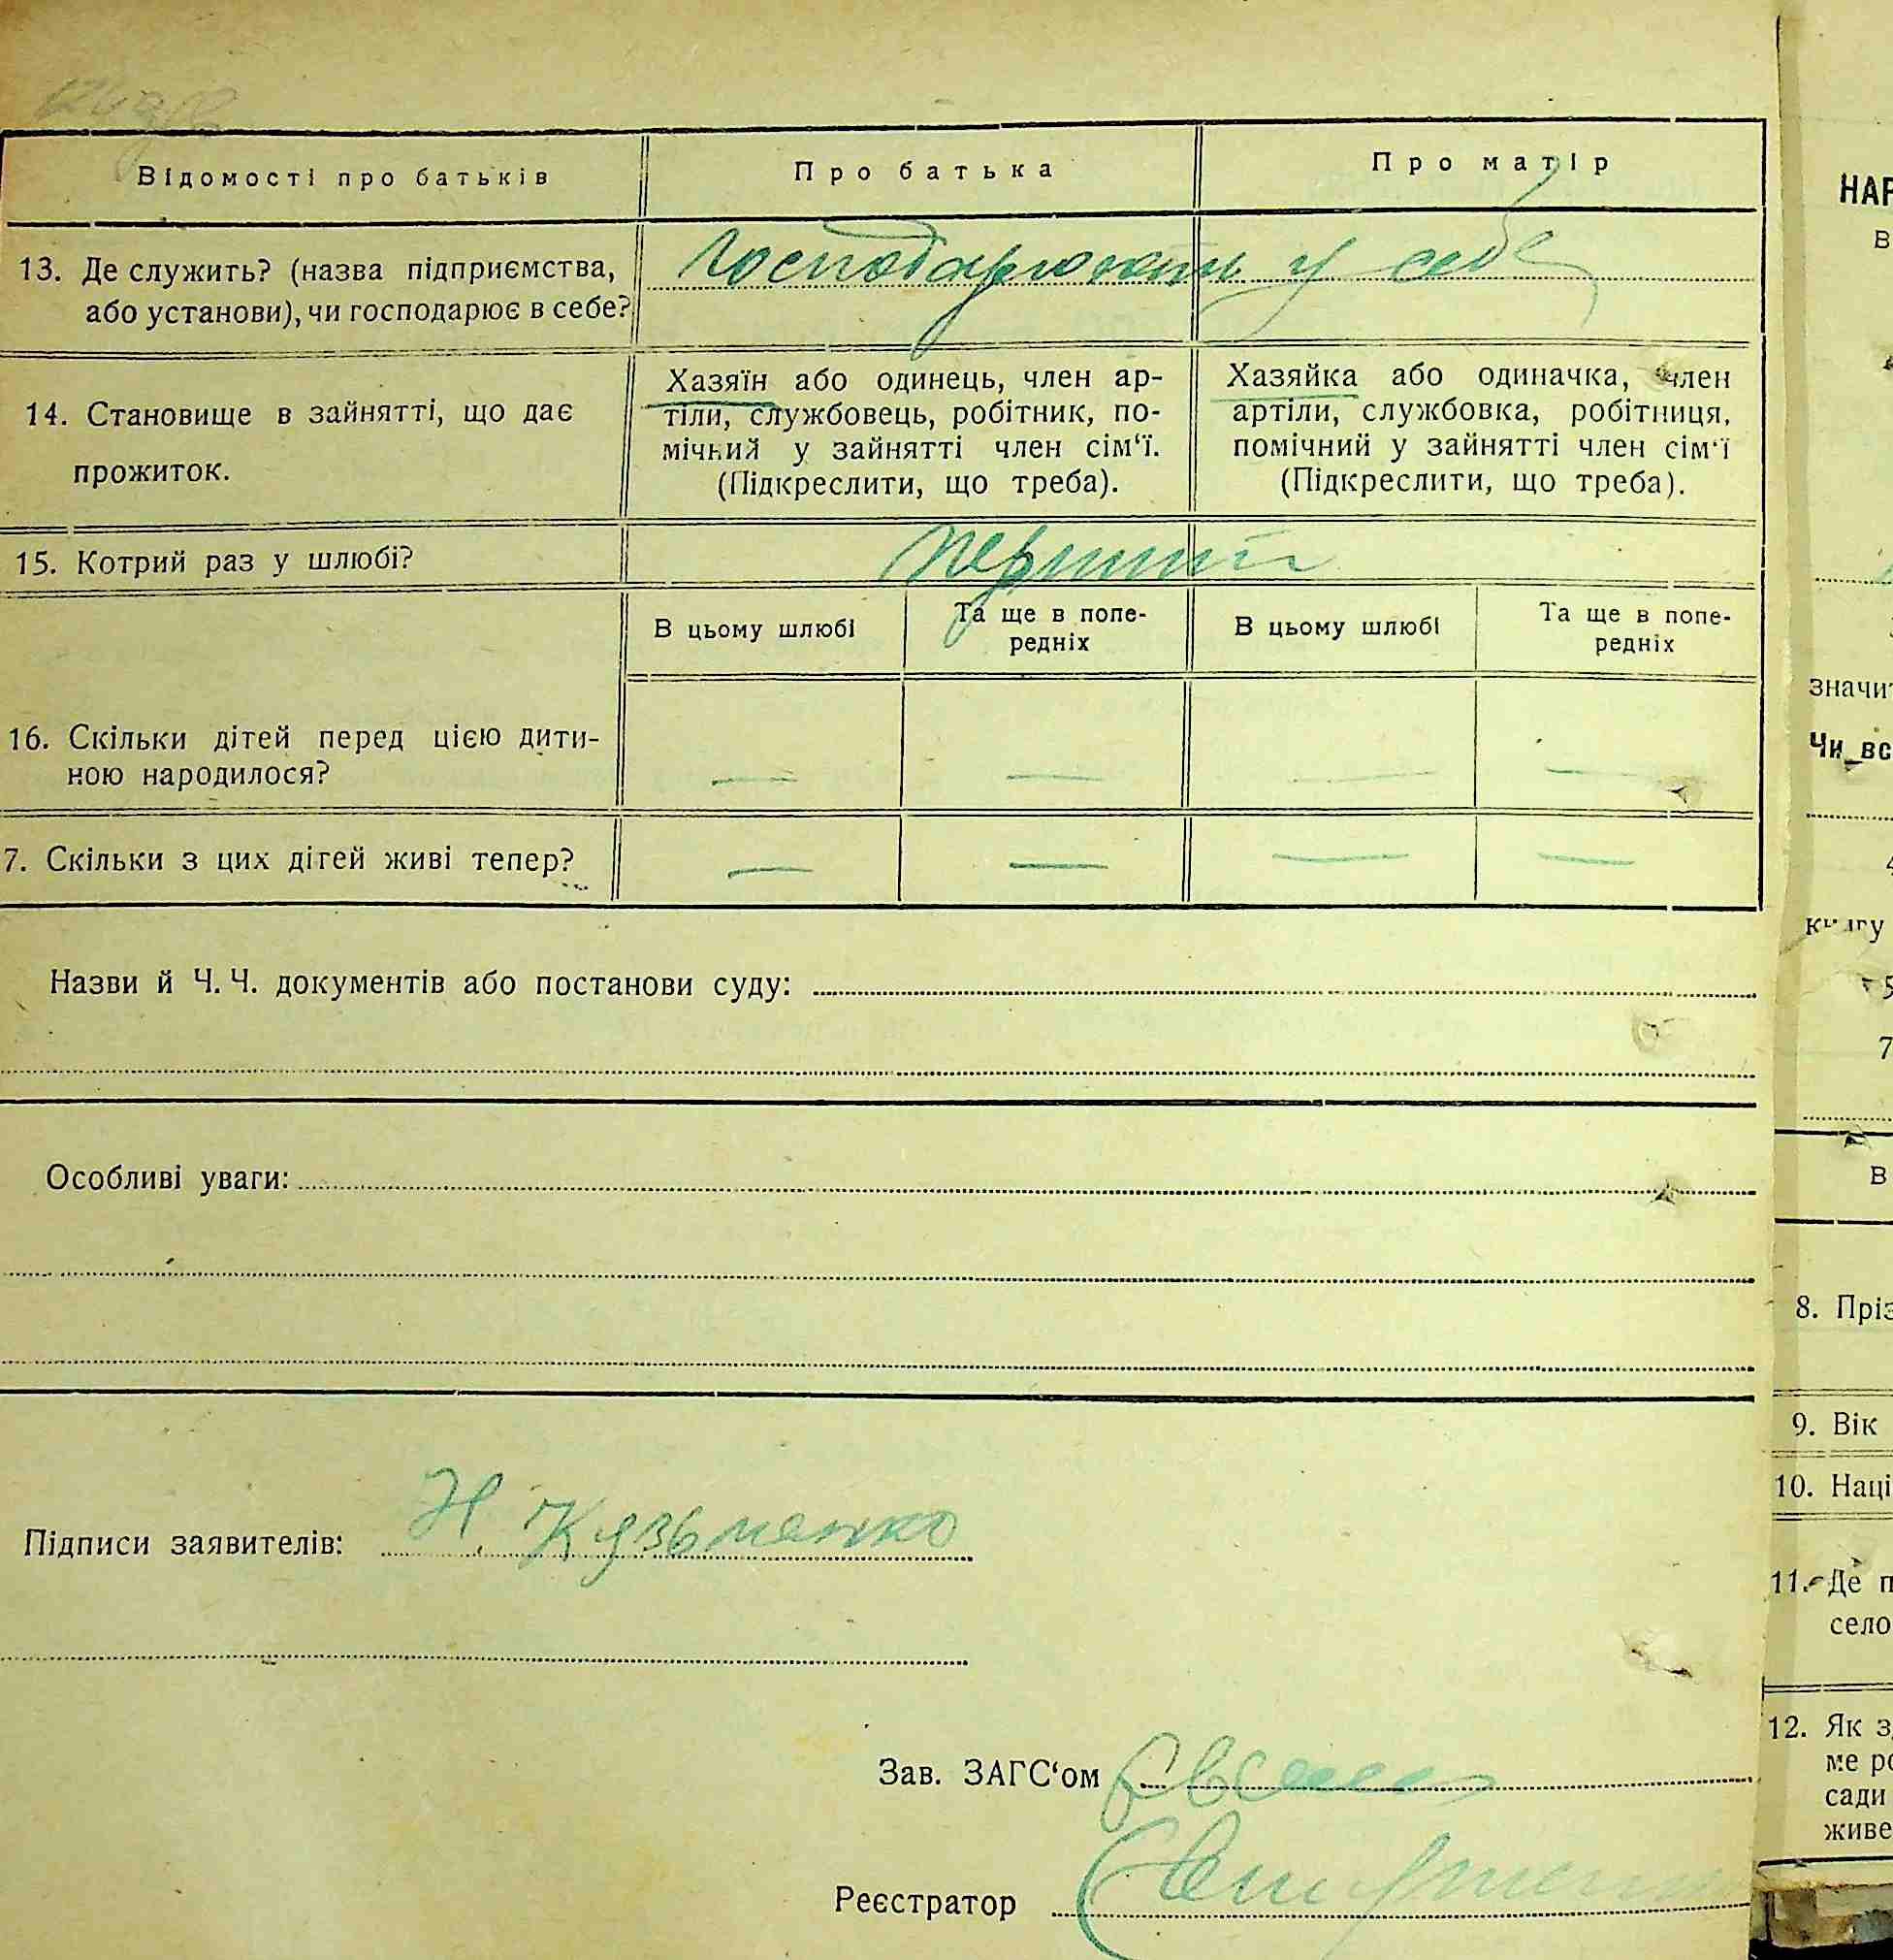 Відомості про батьків
Про батька
Про матір
13. Де служить? (назва підприємства,
або установи), чи господарює в себе?
господарюють у себе
14. Становище в зайнятті, що дає
прожиток.
Хазяїн або одинець, член ар-
тіли, службовець, робітник, по-
мічний у зайнятті член сім‘ї.
(Підкреслити, що треба).
Хазяйка або одиначка, член
артіли, службовка, робітниця,
помічний у зайнятті член сім‘ї
(Підкреслити, що треба).
15. Котрий раз у шлюбі?
перший
В цьому шлюбі
Та ще в попе-
редніх
В цьому шлюбі
Та ще в попе-
редніх
16. Скільки дітей перед цією дити-
ною народилося?
— — — —
7. Скільки з цих дітей живі тепер?
— — — —
Назви й Ч. Ч. документів або постанови суду:
Особливі уваги:
Підписи заявителів: Н Кузьменко
Зав. ЗАГС‘ом
Реєстратор
НАР
В
значит
Чи вс
4
книгу
5
7
В
8. Пріз
9. Вік
10. Наці
11. Де п
село
12. Як з
ме ро
сади
живе